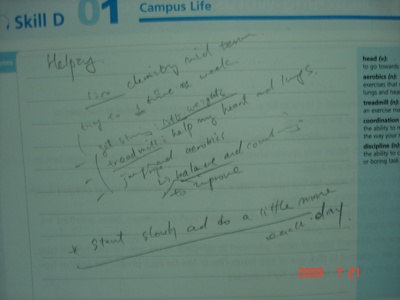 Skill D 01 Campus Life
Helping
chemistry mid term
try to 3 times a week
get strong: with weights
treadmill: help my heart and lungs.
jump and aerobic
balance and coord
to improve
* start slowly and do a little more
each day.
head (v):
to go towards
aerobics (n):
exercises that
lungs and hea
treadmill (n):
an exercise ma
coordination
the ability to
the way your
discipline (n):
the ability to
or boring task
2008 7 21